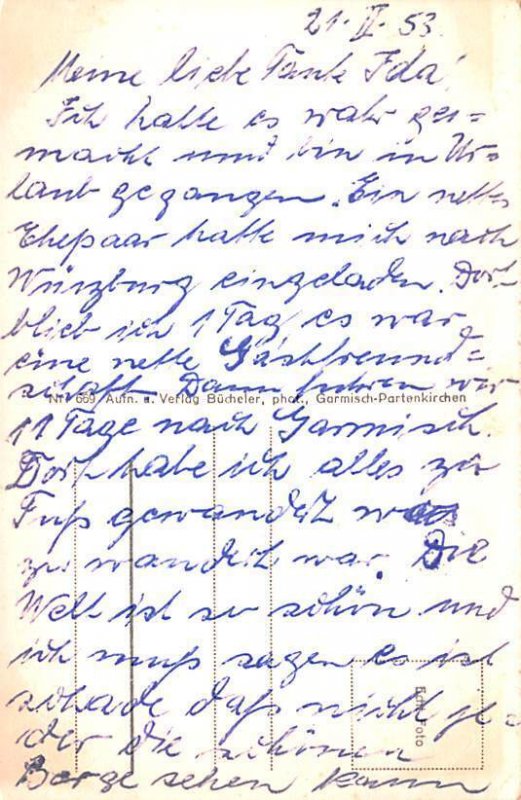 21. II. 53.
Meine liebe Tante Ida!
Ich hatte es wahr ge=
macht und bin in Ur=
laub gegangen. Ein nettes
Ehepaar hatte mich nach
Würzburg eingeladen. Dort
blieb ich 1 Tag es war
eine nette Gastfreund=
schaft. Dann fuhren wir
Nr. 669 Aufn. u. Verlag Bücheler, phot., Garmisch-Partenkirchen
11 Tage nach Garmisch.
Dort habe ich alles zu
Fuß gewandert was
zu wandern war. Die
Welt ist so schön und
ich muß sagen es ist
schade daß nicht je=
der die schönen
Berge sehen kann
Foto